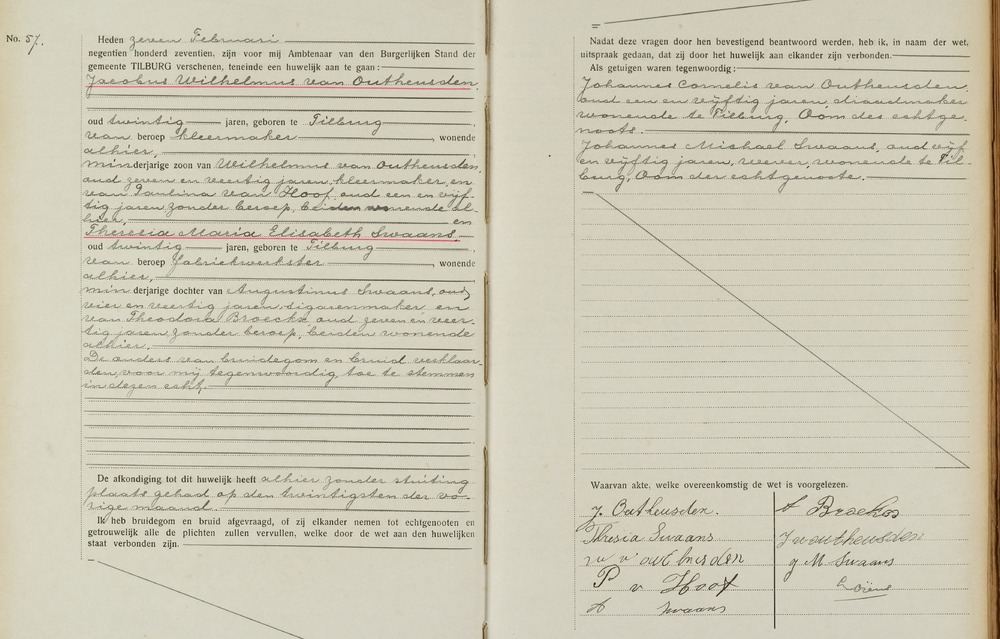 No. 57.
Heden zeven Februari
negentien honderd zeventien, zijn voor mij Ambtenaar van den Burgerlijken Stand der
gemeente TILBURG verschenen, teneinde een huwelijk aan te gaan:
Jacobus Wilhelmus van Outheusden,
oud twintig jaren, geboren te Tilburg,
van beroep kleermaker, wonende
alhier,
minderjarige zoon van Wilhelmus van Outheusden,
oud zeven en veertig jaren, kleermaker, en
van Paulina van Hoof, oud een en vijf-
tig jaren zonder beroep, beiden wonende al-
hier, en
Theresia Maria Elisabeth Swaans,
oud twintig jaren, geboren te Tilburg,
van beroep fabriekwerkster, wonende
alhier,
minderjarige dochter van Augustinus Swaans, oud
vier en veertig jaren, sigarenmaker, en
van Theodora Broeckx, oud zeven en veer-
tig jaren, zonder beroep, beiden wonende
alhier.
De ouders van bruidegom en bruid verklaar-
den, voor mij tegenwoordig, toe te stemmen
in dezen echt.
De afkondiging tot dit huwelijk heeft alhier zonder stuiting
plaats gehad op den twintigsten der vo-
rige maand.
Ik heb bruidegom en bruid afgevraagd, of zij elkander nemen tot echtgenooten en
getrouwelijk alle de plichten zullen vervullen, welke door de wet aan den huwelijken
staat verbonden zijn.
Nadat deze vragen door hen bevestigend beantwoord werden, heb ik, in naam der wet,
uitspraak gedaan, dat zij door het huwelijk aan elkander zijn verbonden.
Als getuigen waren tegenwoordig:
Johannes Cornelis van Outheusden,
oud een en vijftig jaren, draadmaker
wonende te Tilburg, Oom des echtge-
noots.
Johannes Michael Swaans, oud vijf
en vijftig jaren, wever, wonende te Til-
burg, Oom der echtgenoote.
Waarvan akte, welke overeenkomstig de wet is voorgelezen.
J. Outheusden.
Theresia Swaans
P v Hoof
Swaans
Broekos
J v outheusden
J M Swaans